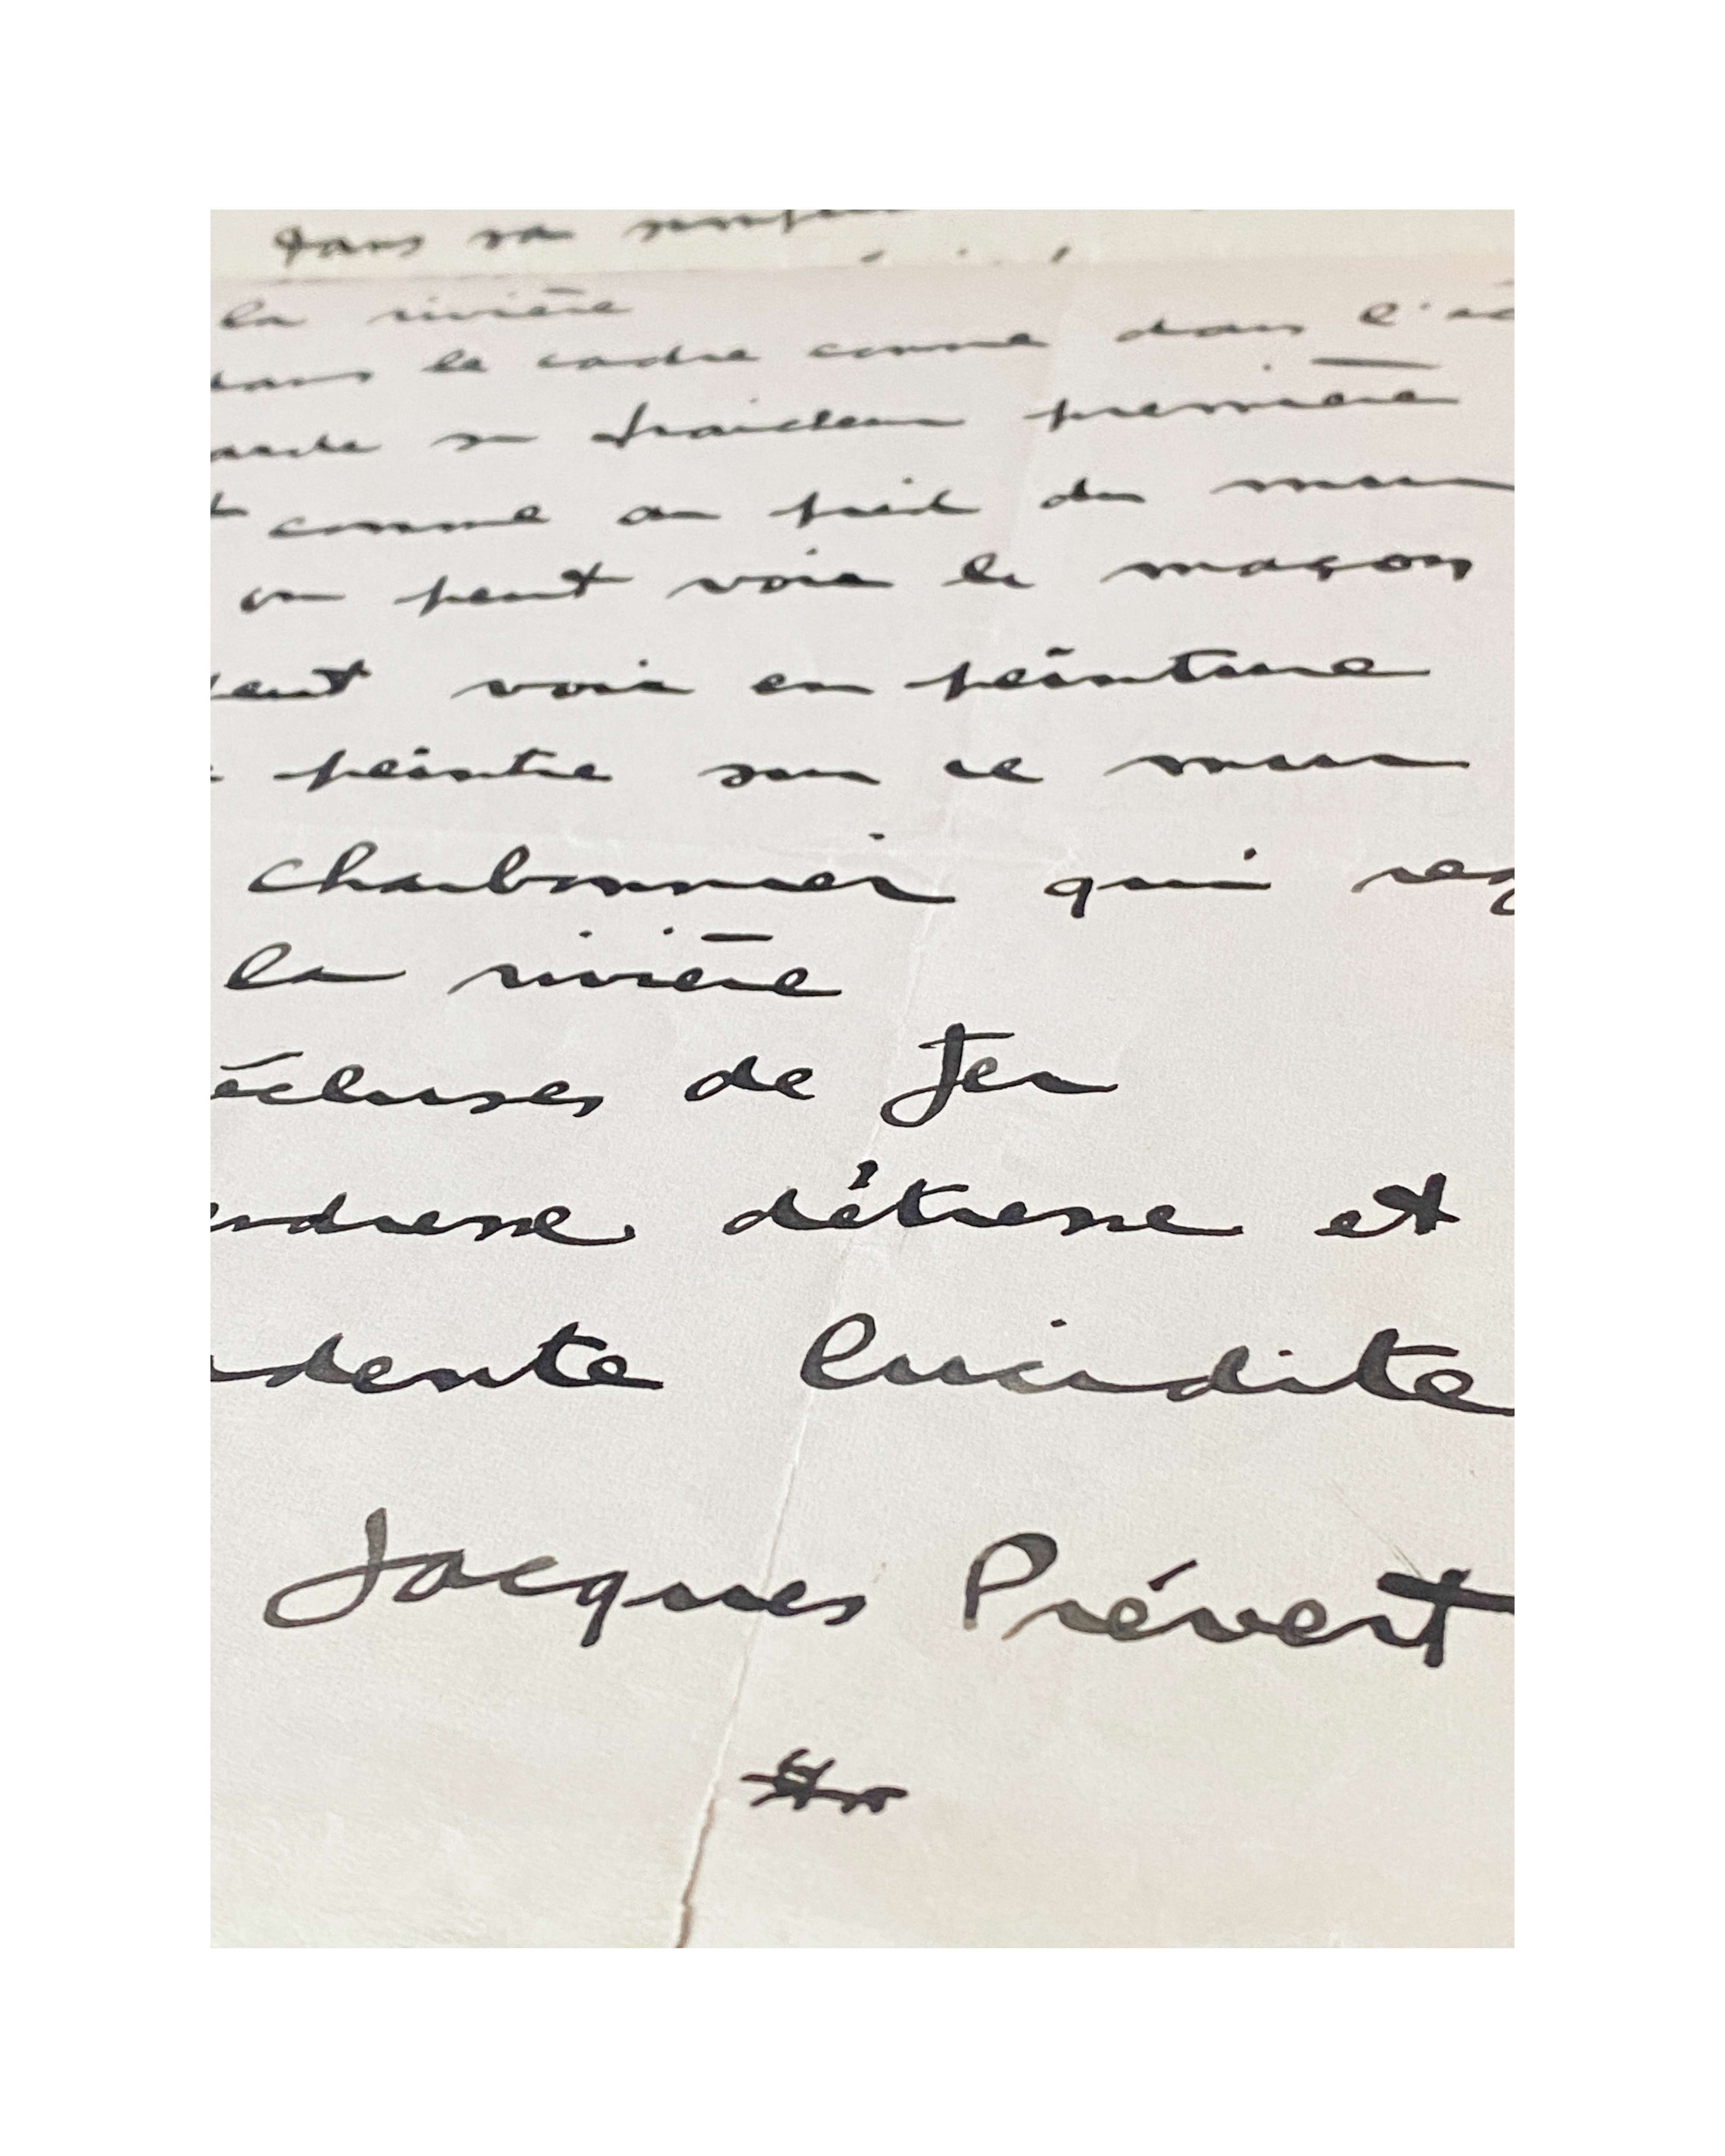 dans sa
la rivière
dans le cadre comme dans l'éc
arde sa fraicheur première
t comme au pied du mur
on peut voir le maçon
peut voir en peinture
peintre sur ce mur
charbonnier qui reg
la rivière
écluses de fer
endresse détresse et
dente lucidité
Jacques Prévert